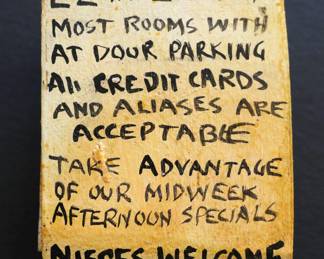 MOST ROOMS WITH
AT DOUR PARKING
All CREDIT CARDS
AND ALIASES ARE
ACCEPTABLE
TAKE ADVANTAGE
OF OUR MIDWEEK
AFTERNOON SPECIALS
NIECES WELCOME